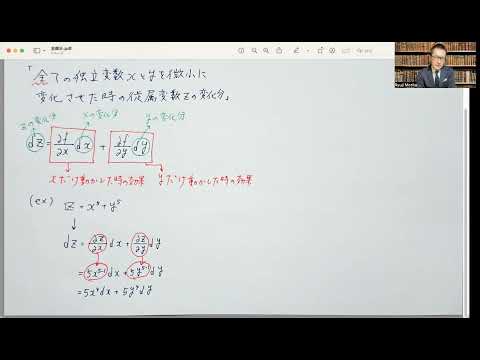 「全ての独立変数xとyを微小に
変化させた時の従属変数zの変化分」
zの変化分 xの変化分 yの変化分
dz = ∂f/∂x dx + ∂f/∂y dy
xだけ動かした時の効果 yだけ動かした時の効果
(ex) z = x⁵ + y⁵
↓
dz = ∂z/∂x dx + ∂z/∂y dy
= 5x⁵⁻¹dx + 5y⁵⁻¹dy
= 5x⁴dx + 5y⁴dy